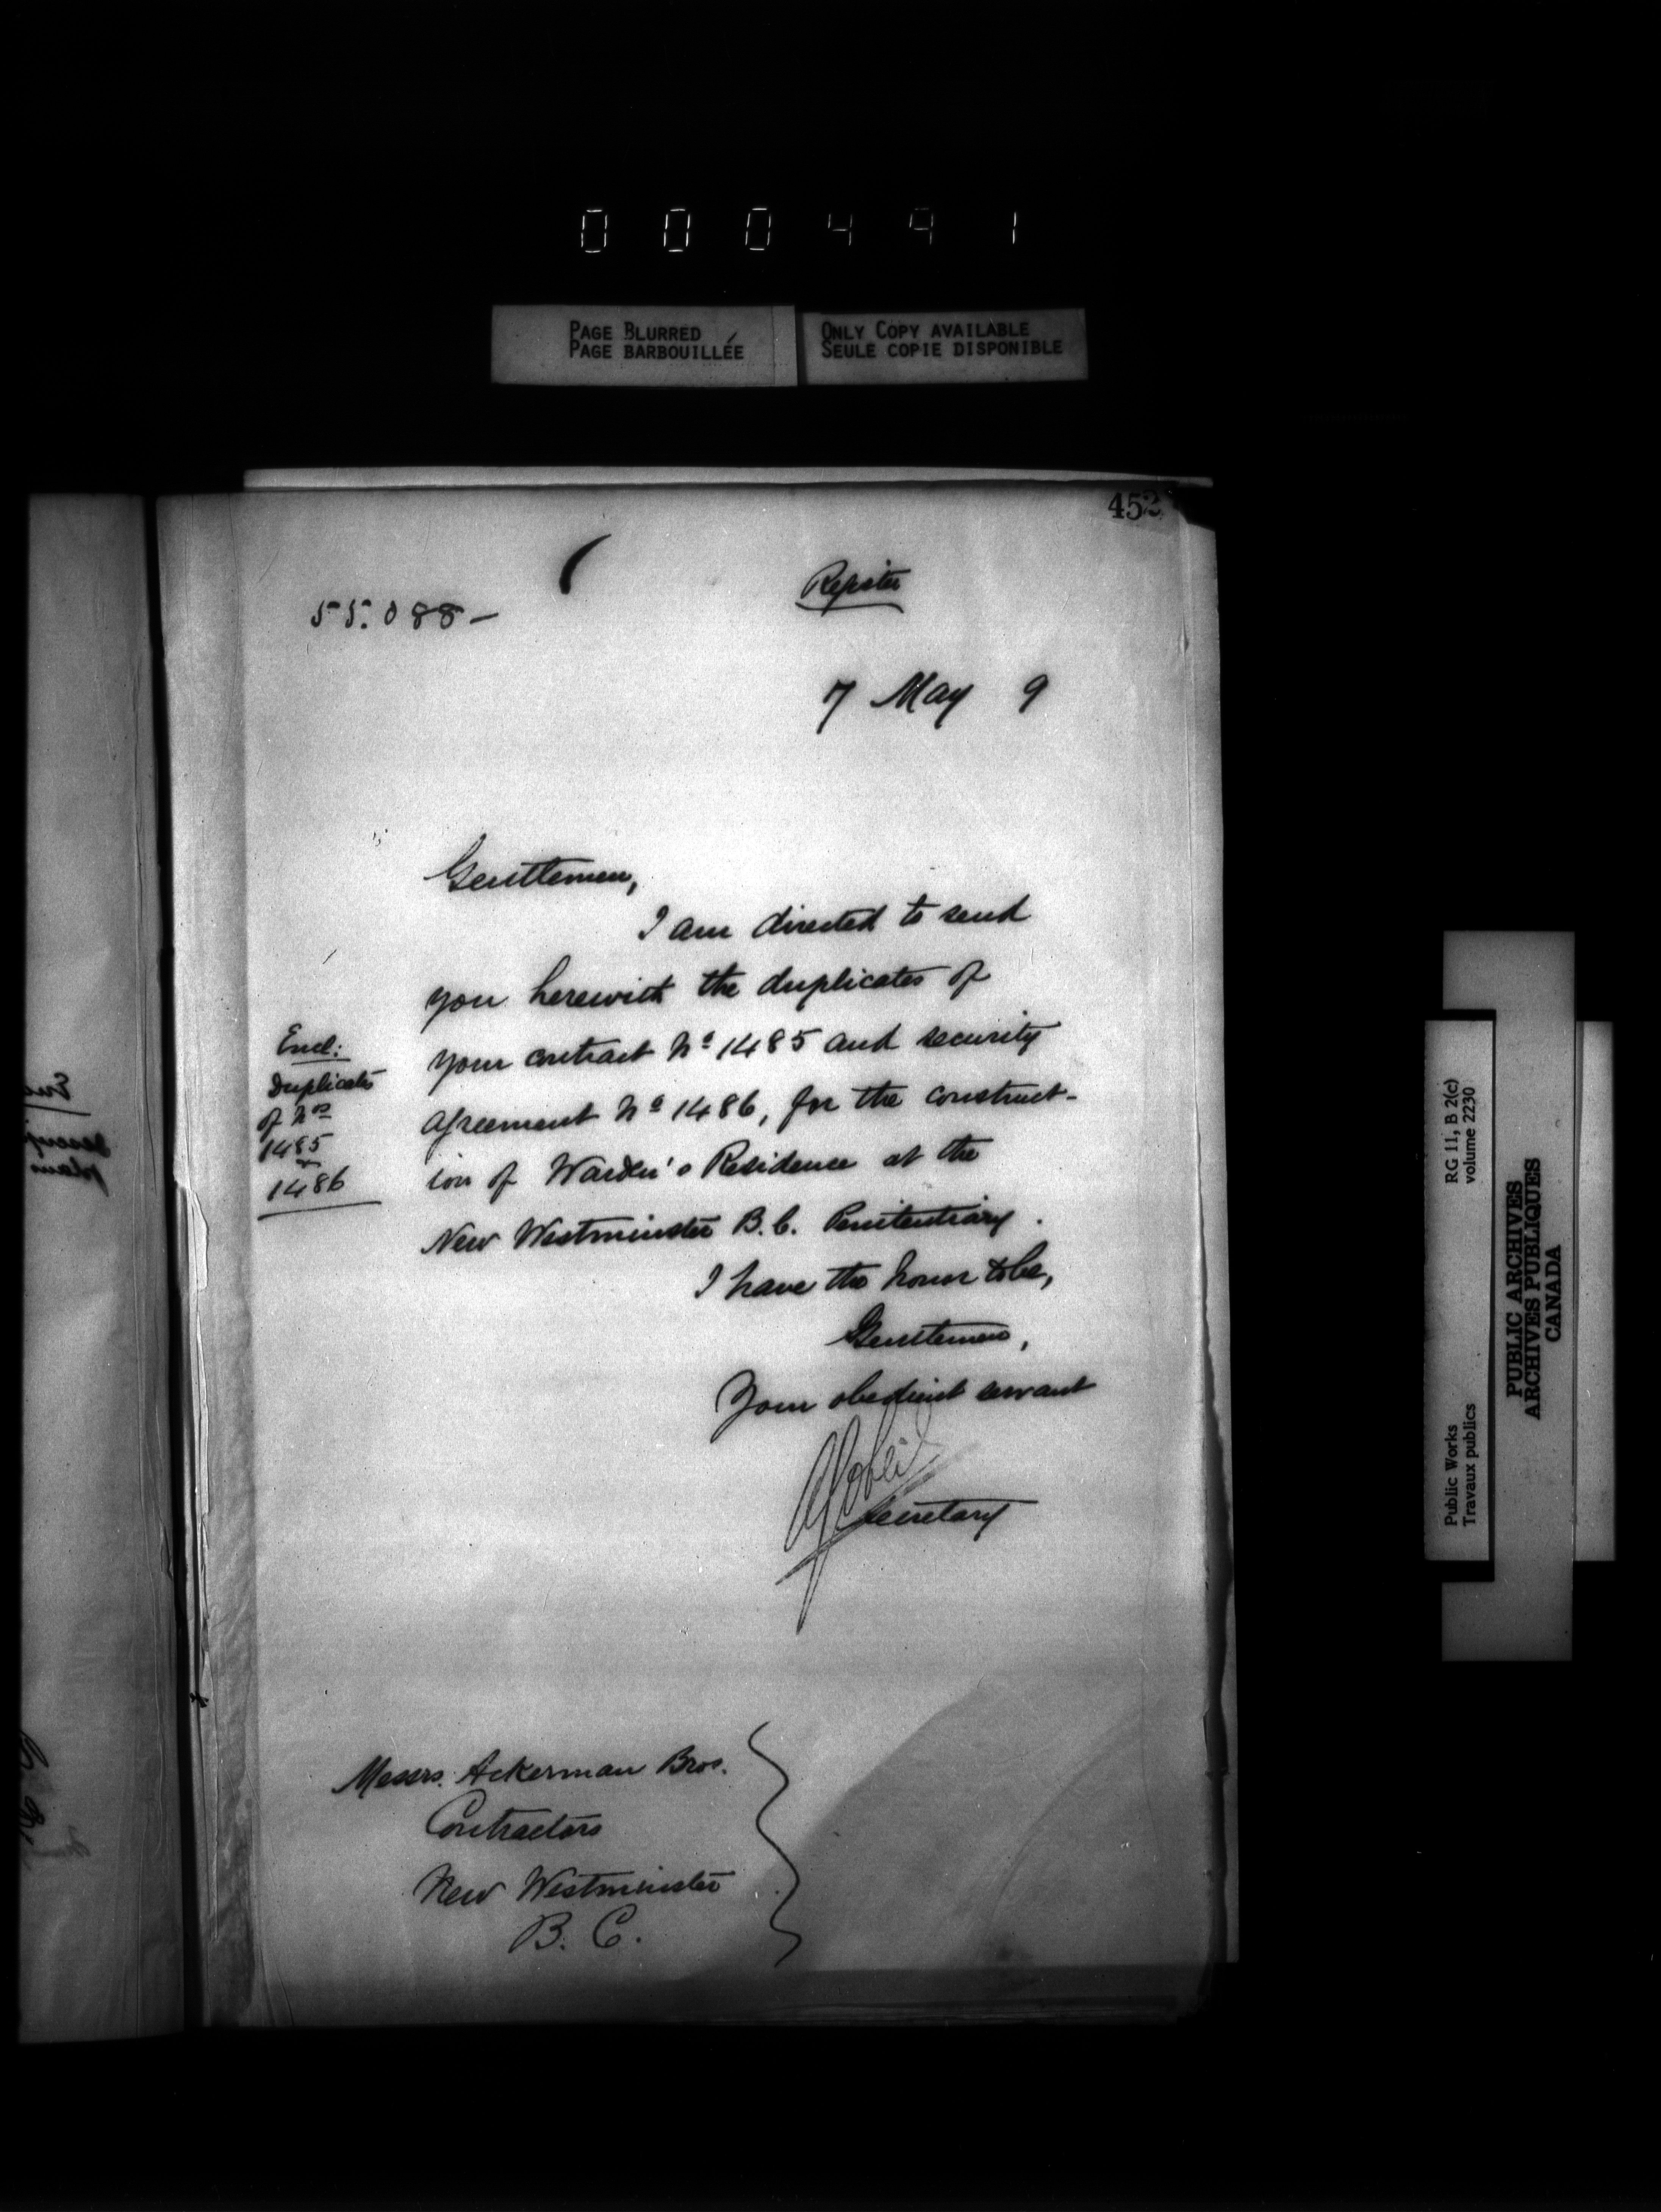 000491
PAGE BLURRED
PAGE BARBOUILLÉE
ONLY COPY AVAILABLE
SEULE COPIE DISPONIBLE
452
55.088-
Register
7 May 9
Gentlemen,
I am directed to send
you herewith the duplicates of
your contract Nº 1485 and security
agreement Nº 1486, for the construct-
ion of Warden's Residence at the
New Westminster B.C. Penitentiary.
Encl:
Duplicates
of Nos
1485
&
1486
I have the honor to be,
Gentlemen,
Your obedient servant
Secretary
Messrs. Ackerman Bros.
Contractors
New Westminster
B. C.
RG 11, B 2(c)
volume 2230
Public Works
Travaux publics
PUBLIC ARCHIVES
ARCHIVES PUBLIQUES
CANADA